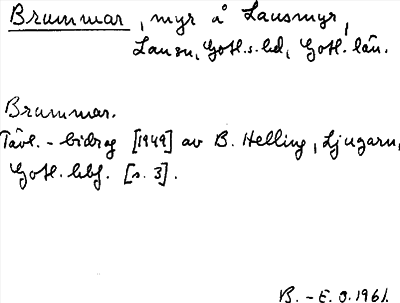 Brummar, myr å Lausmyr,
Lau sn, Gotl. s. hd, Gotl. län.
Brummar.
Tävl.-bidrag [1949] av B. Helling, Ljugarn,
Gotl. hbf. [s. 3].
B.-E. O. 1961.